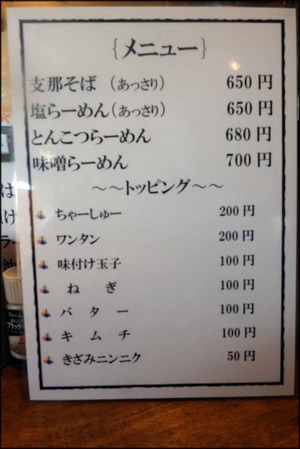 {メニュー}
支那そば (あっさり) 650円
塩らーめん(あっさり) 650円
とんこつらーめん 680円
味噌らーめん 700円
～～トッピング～～
ちゃーしゅー 200円
ワンタン 200円
味付け玉子 100円
ねぎ 100円
バター 100円
キムチ 100円
きざみニンニク 50円